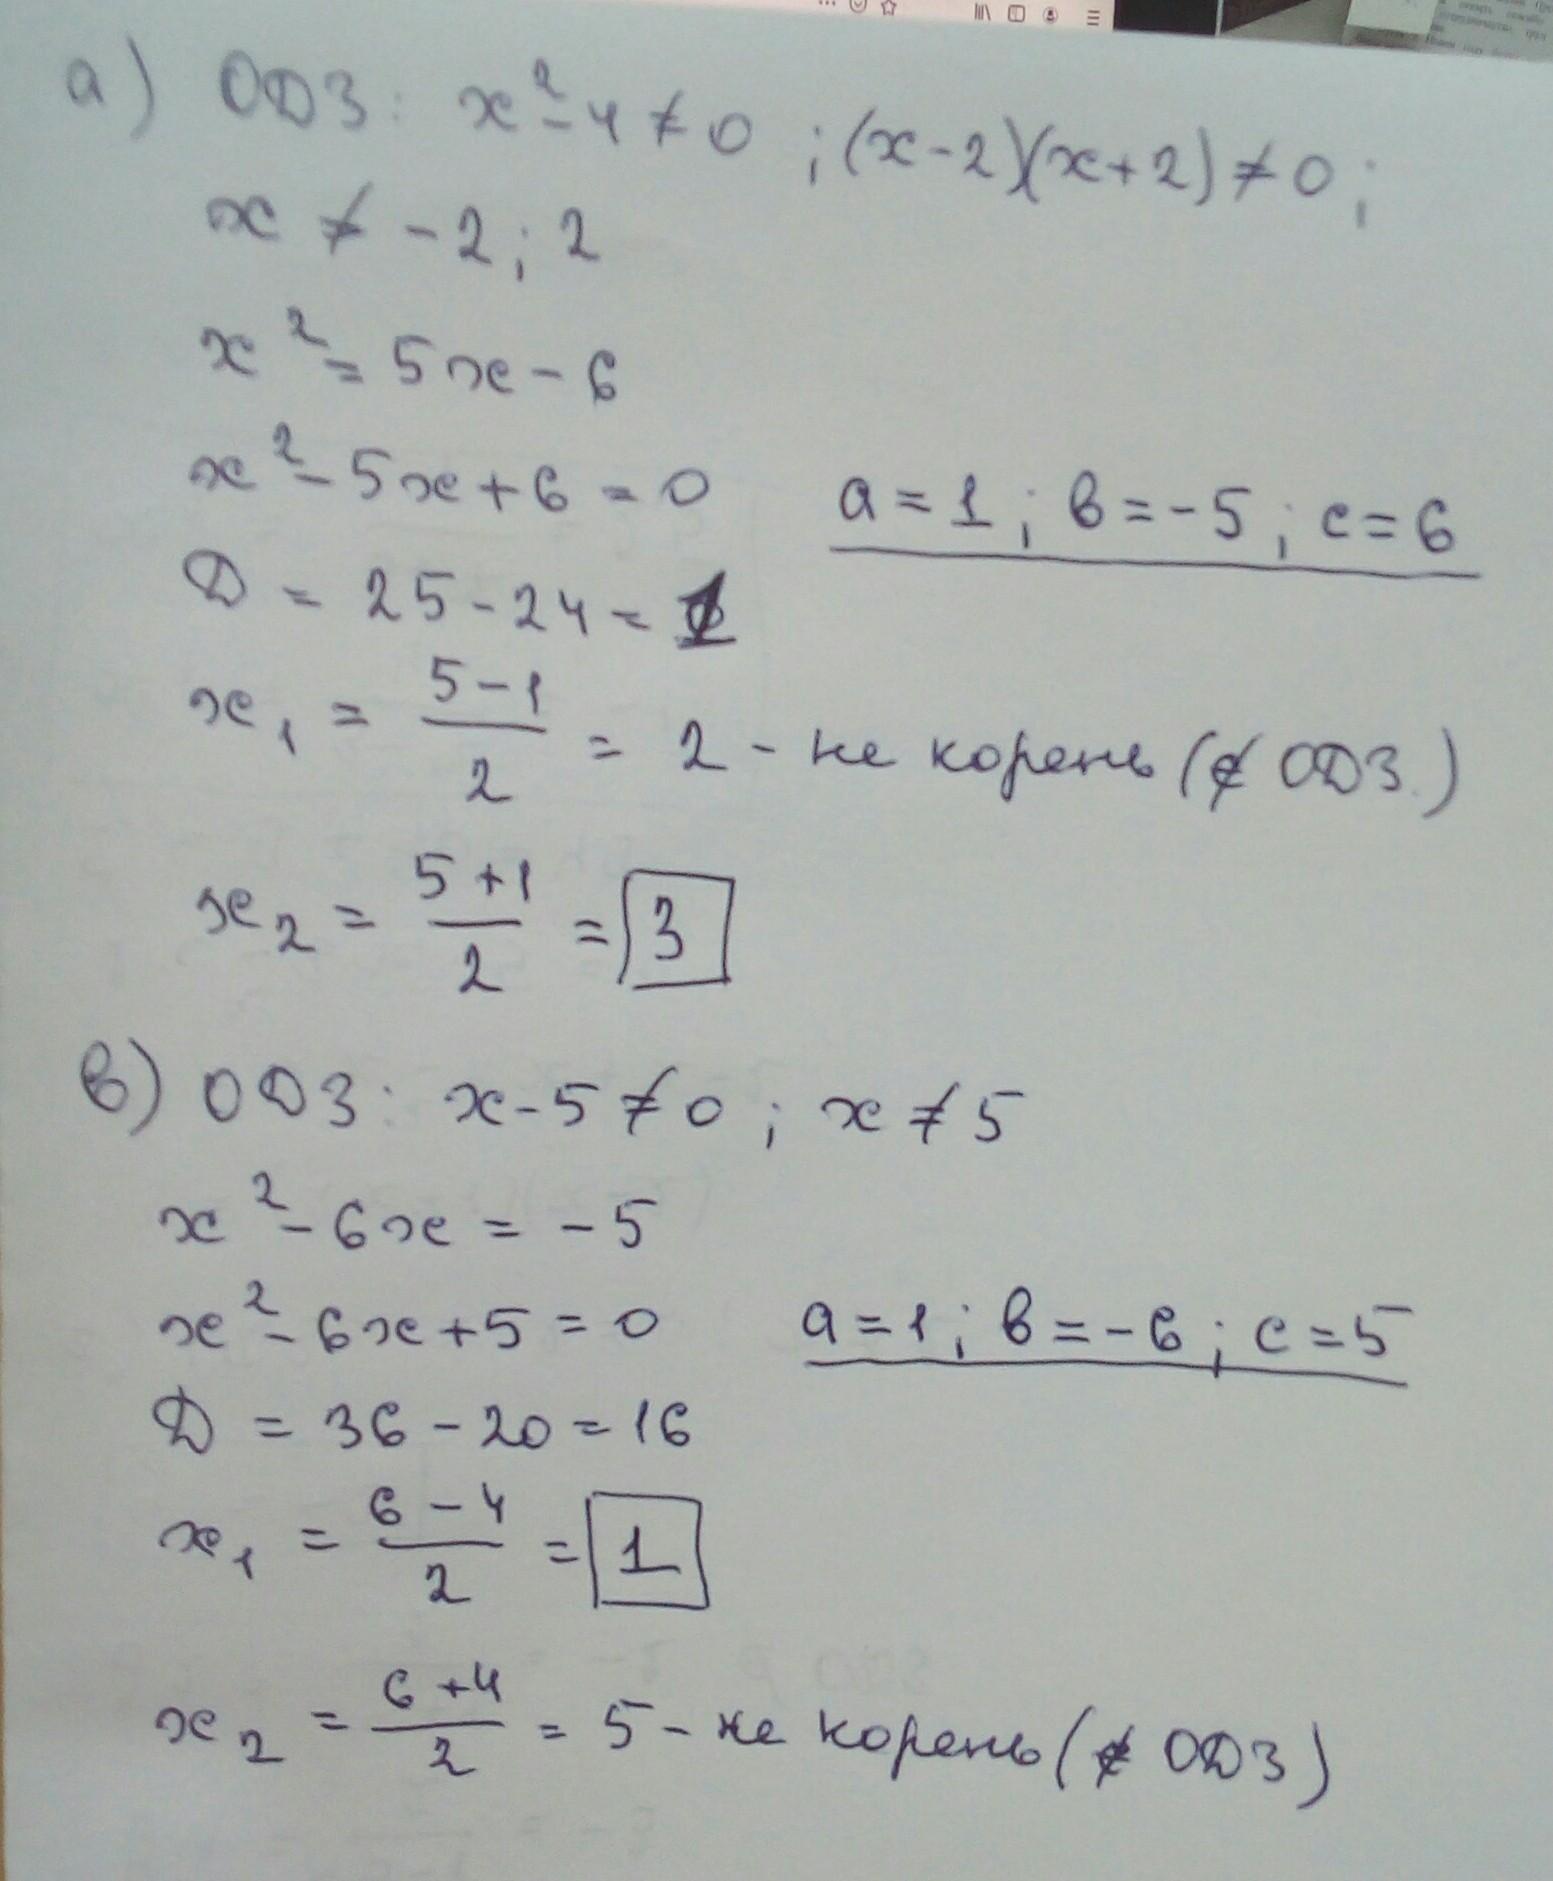 а) ОДЗ: x²-4≠0; (x-2)(x+2)≠0;
x ≠ -2; 2
x² = 5x - 6
x² - 5x + 6 = 0 a = 1; b = -5; c = 6
D = 25 - 24 = 1
x₁ = (5-1)/2 = 2 - не корень (∉ ОДЗ.)
x₂ = (5+1)/2 = 3
в) ОДЗ: x-5≠0; x≠5
x² - 6x = -5
x² - 6x + 5 = 0 a = 1; b = -6; c = 5
D = 36 - 20 = 16
x₁ = (6-4)/2 = 1
x₂ = (6+4)/2 = 5 - не корень (∉ ОДЗ)